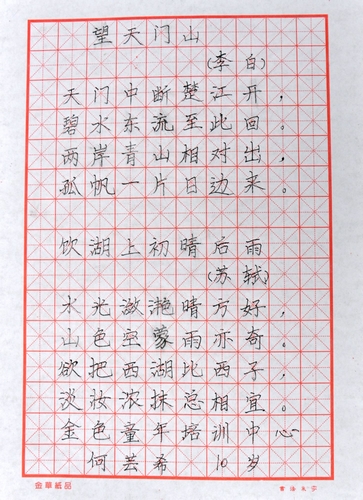 望天门山
(李白)
天门中断楚江开，
碧水东流至此回。
两岸青山相对出，
孤帆一片日边来。
饮湖上初晴后雨
(苏轼)
水光潋滟晴方好，
山色空蒙雨亦奇。
欲把西湖比西子，
淡妆浓抹总相宜。
金色童年培训中心
何芸希 10岁
金華紙品